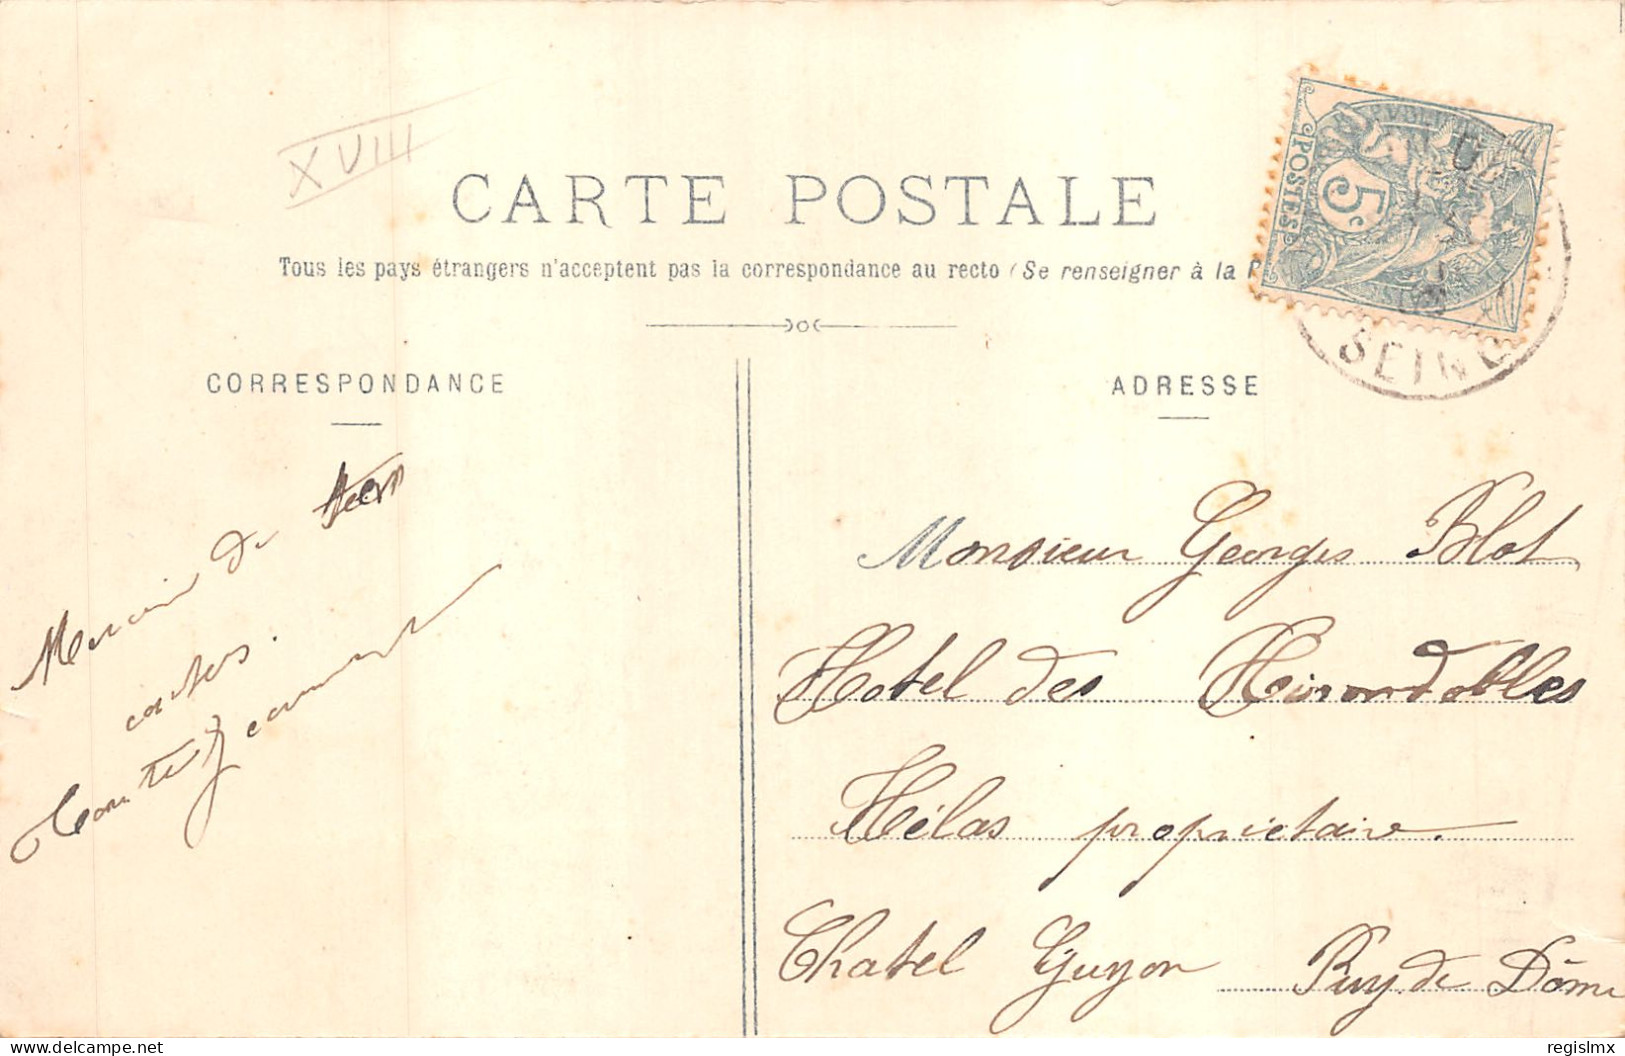 XVIII
CARTE POSTALE
Tous les pays étrangers n'acceptent pas la correspondance au recto (Se renseigner à la P
POSTES
5c
SEINE
CORRESPONDANCE
ADRESSE
Merci de
cartes.
Jeanne
Monsieur Georges Blot
Hotel des Hirondelles
Hélas propriétaire.
Chatel Guyon Puy de Dôme
delcampe.net
regislmx